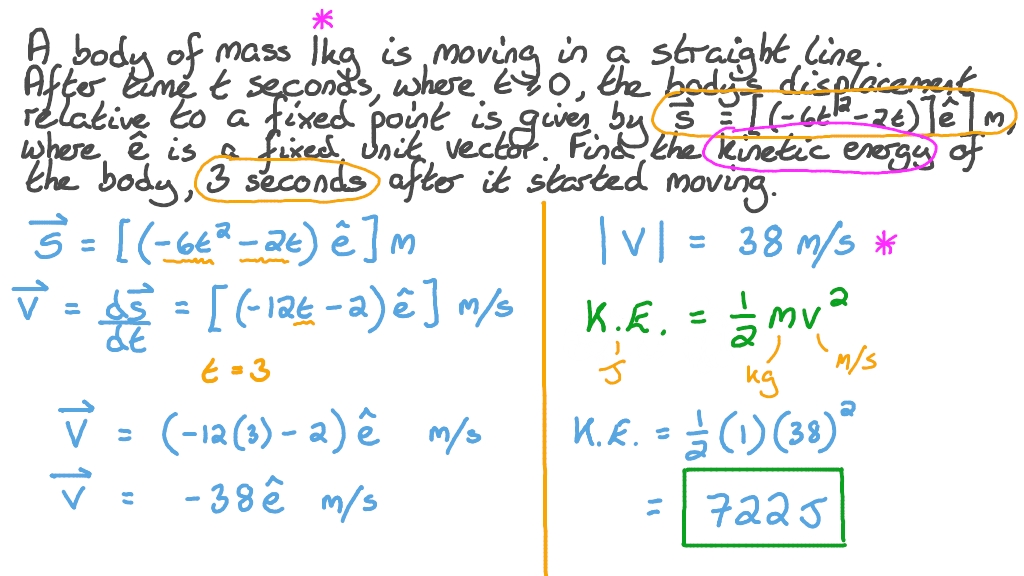 *
A body of mass 1kg is moving in a straight line.
After time t seconds, where t ⩾ 0, the body's displacement
relative to a fixed point is given by s⃗ = [(-6t² - 2t)]ê] m,
where ê is a fixed unit vector. Find the kinetic energy of
the body, 3 seconds after it started moving.
s⃗ = [(-6t² - 2t) ê] m
v⃗ = ds⃗/dt = [(-12t - 2) ê] m/s
t = 3
v⃗ = (-12(3) - 2) ê m/s
v⃗ = -38 ê m/s
|V| = 38 m/s *
K.E. = 1/2 mv²
J kg m/s
K.E. = 1/2 (1)(38)²
= 722 J